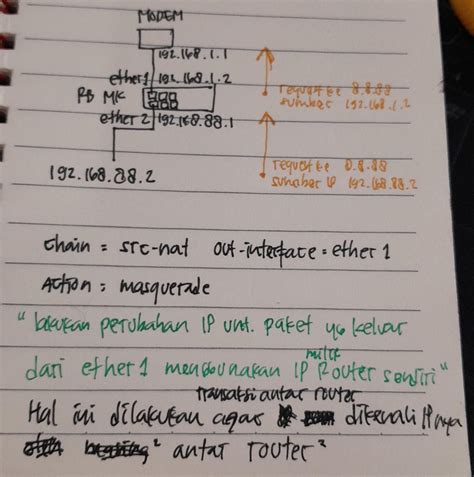 MODEM
192.168.1.1
ether1 192.168.1.2
RB MK
ether 2 192.168.88.1
192.168.88.2
request ke 8.8.88
sumber 192.168.1.2
request ke 8.8.88
sumber IP 192.168.88.2
Chain = src-nat out-interface = ether 1
Action = masquerade
"lakukan perubahan IP unt. paket yg keluar
dari ether 1 menggunakan IP milik Router sendiri"
transaksi antar router
Hal ini dilakukan agar dikenali IPnya
antar router²